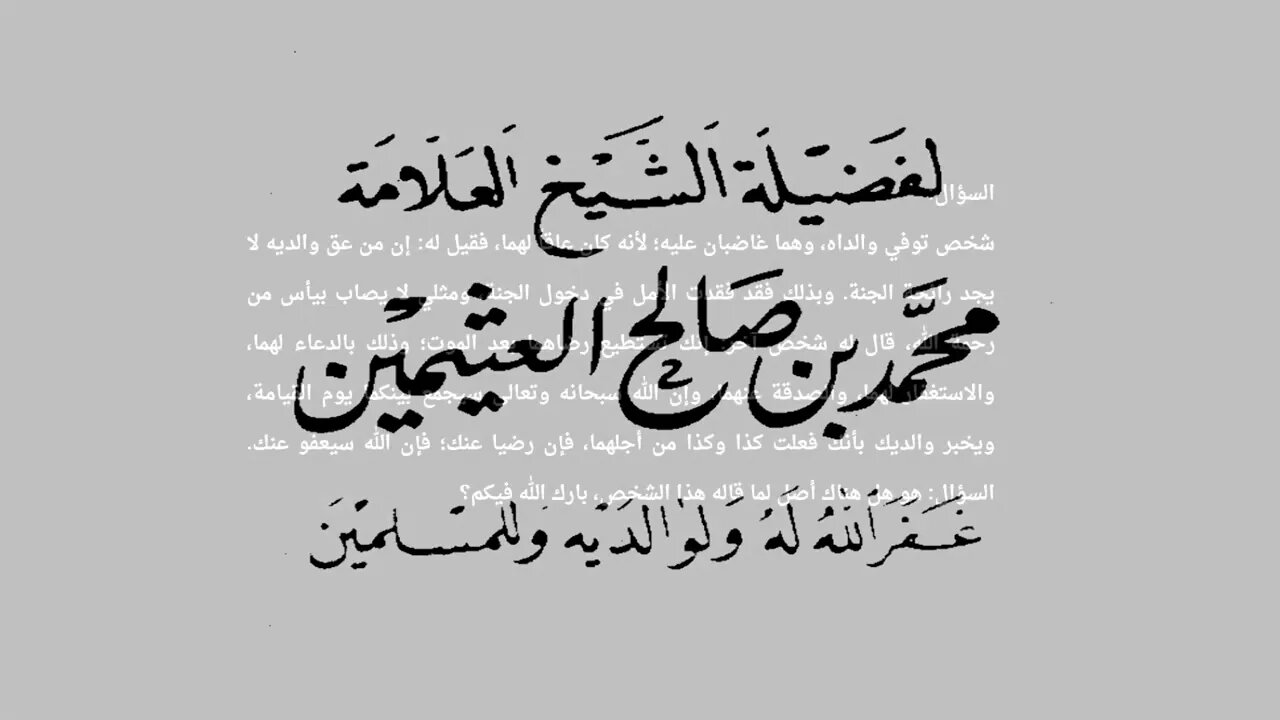 لفَضيْلَة الشَّيْخ العَلَّامَة
محمَّد بن صَالح العثيميْن
غَفَرَ اللهُ لَهُ وَلوَالدَيْه وَللمُسْلميْن
السؤال:
شخص توفي والداه، وهما غاضبان عليه؛ لأنه كان عاقًا لهما، فقيل له: إن من عق والديه لا
يجد رائحة الجنة. وبذلك فقد فقدت الأمل في دخول الجنة، ومثلي لا يصاب بيأس من
رحمة الله، قال له شخص آخر: إنك تستطيع رضاهما بعد الموت؛ وذلك بالدعاء لهما،
والاستغفار لهما، والصدقة عنهما، وإن الله سبحانه وتعالى سيجمع بينكما يوم القيامة،
ويخبر والديك بأنك فعلت كذا وكذا من أجلهما، فإن رضيا عنك؛ فإن الله سيعفو عنك.
السؤال: هو هل هناك أصل لما قاله هذا الشخص، بارك الله فيكم؟